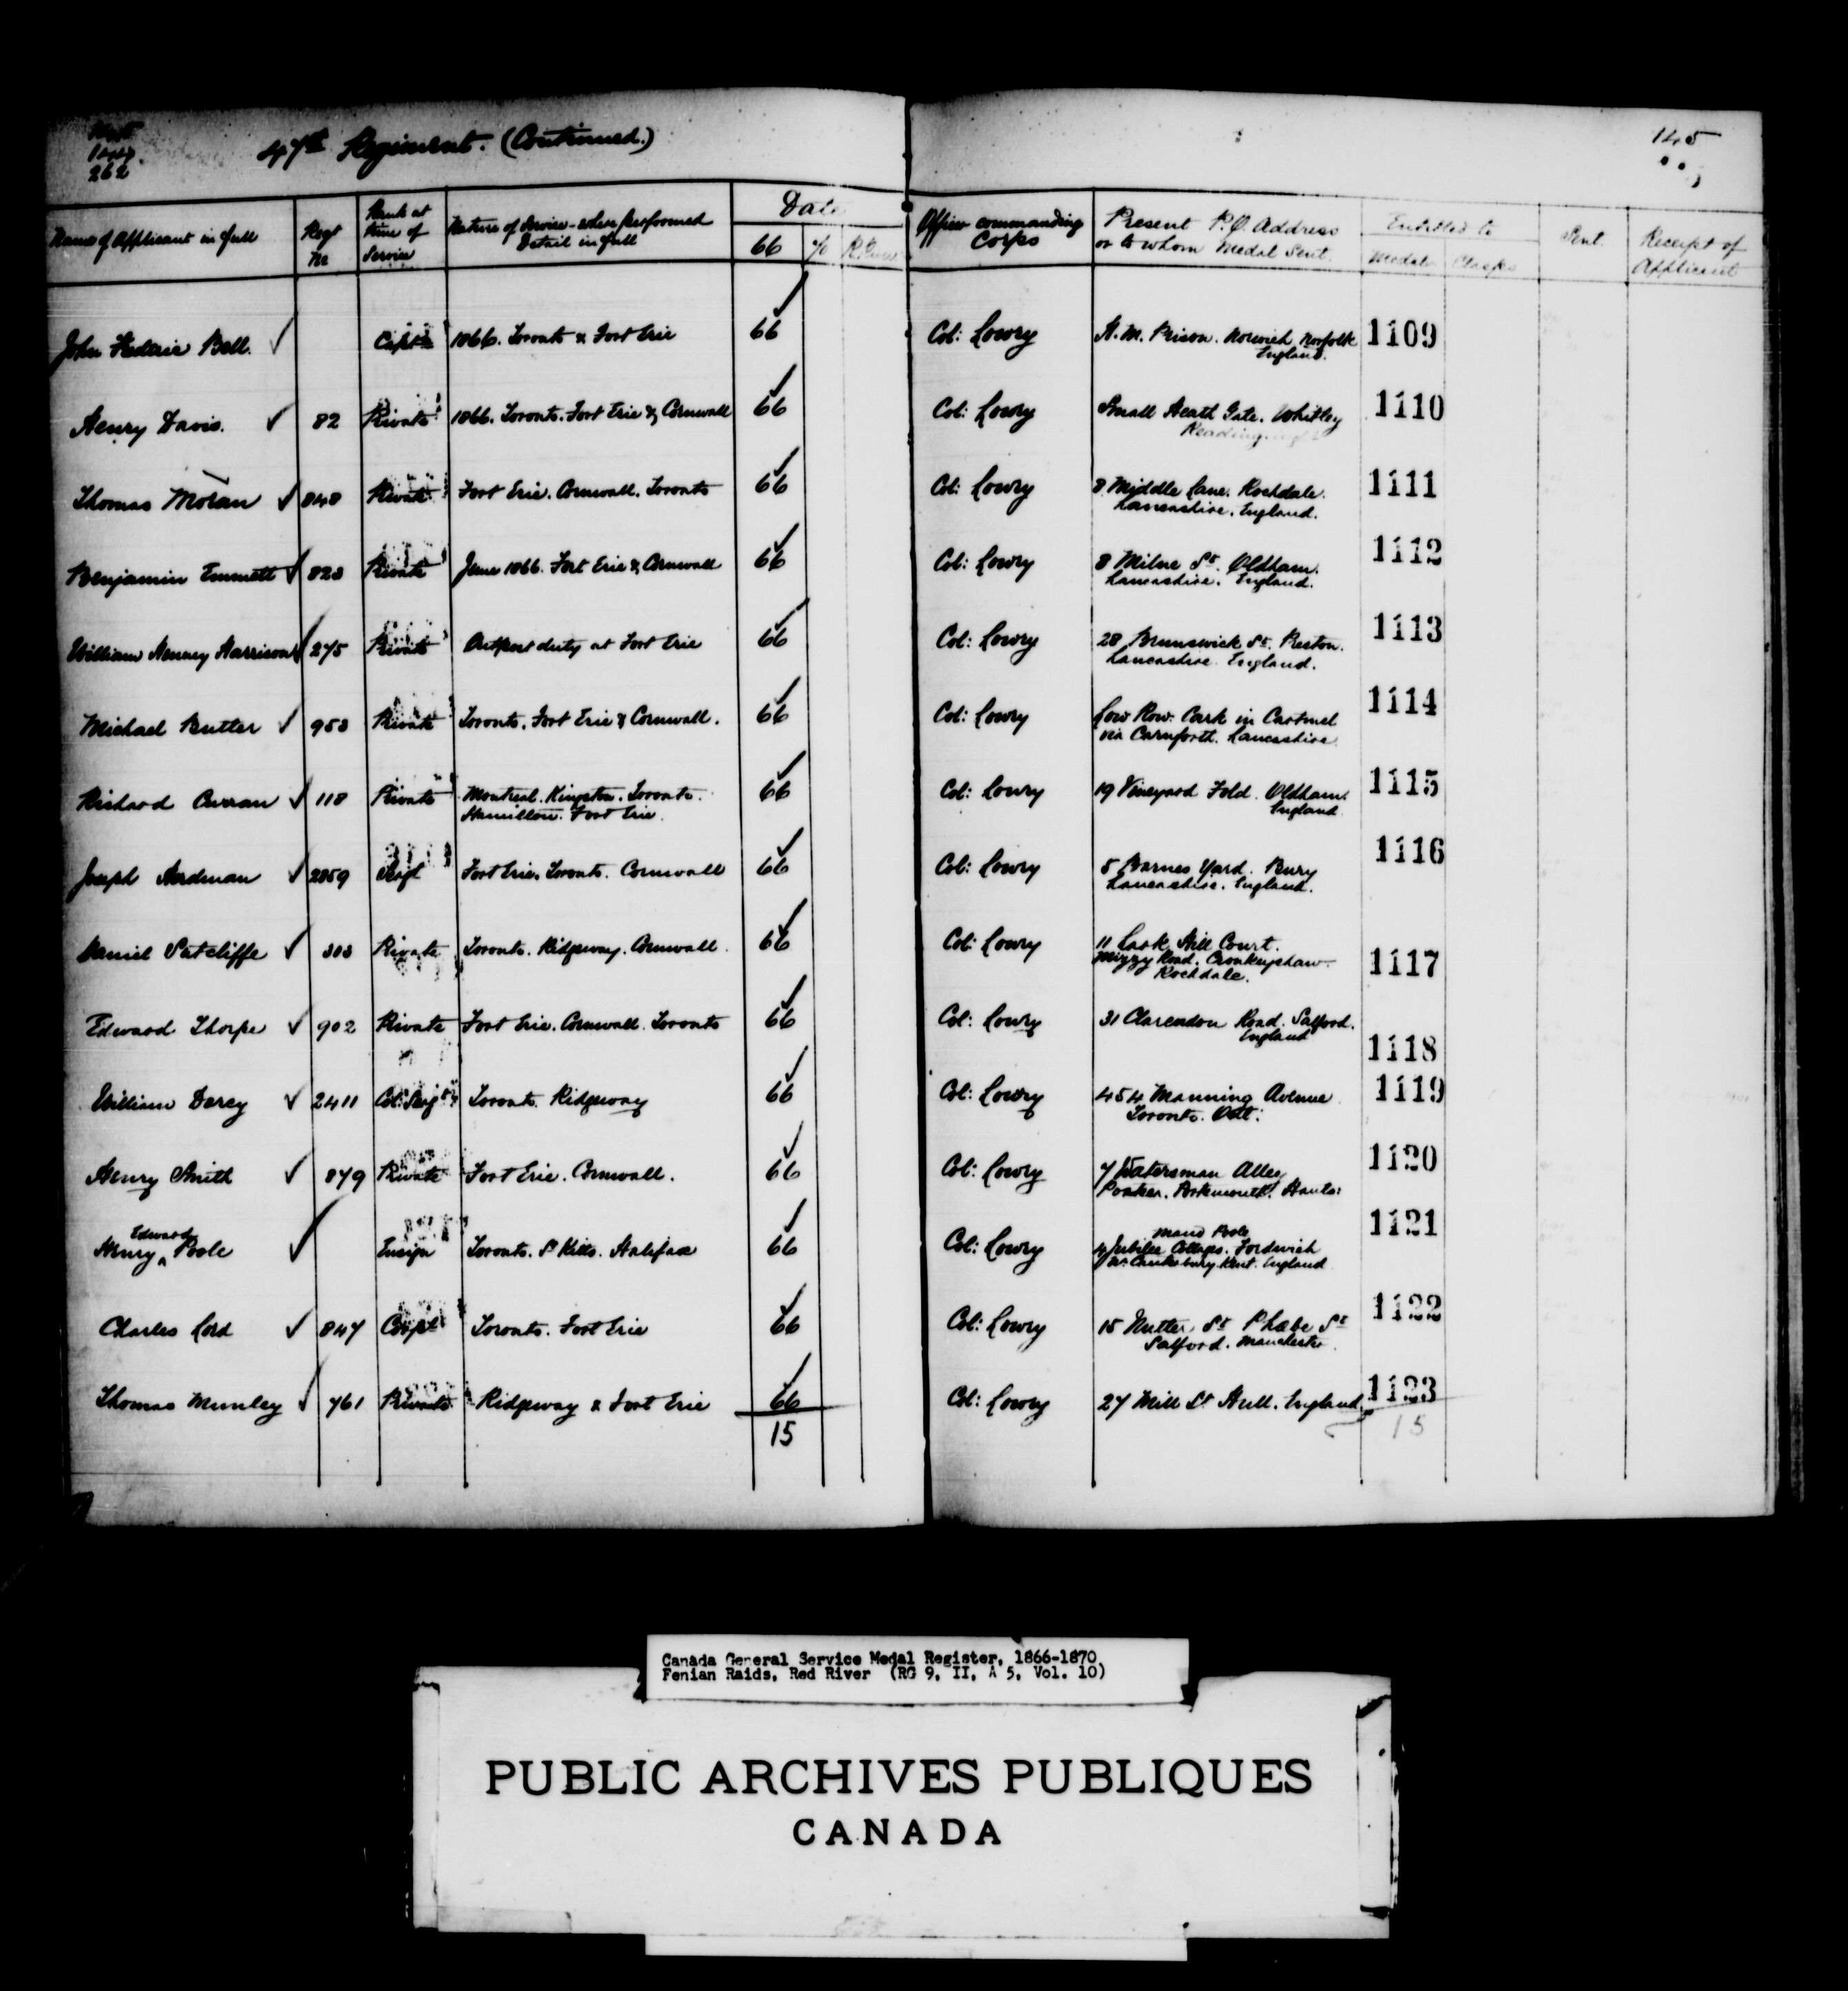 144
262
47th Regiment. (Continued.)
145
Name of Applicant in full
Regt No
Rank at time of Service
Nature of Service - where performed
Detail in full
Date
66
70
R River
Officer commanding Corps
Present P.O. Address
or to whom Medal Sent.
Entitled to
Medals
Clasps
Sent.
Receipt of Applicant
John Frederic Bell. Capt 1866. Toronto & Fort Erie 66 Col: Lowry H.M. Prison. Norwich Norfolk 1109
England.
Henry Davis. 82 Private 1866. Toronto. Fort Erie & Cornwall 66 Col: Lowry Small Heath Gate. Whitley 1110
Reading
Thomas Moran 848 Private Fort Erie. Cornwall. Toronto 66 Col: Lowry 8 Middle Lane. Rochdale. 1111
Lancashire. England.
Benjamin Emmett 823 Private June 1866. Fort Erie & Cornwall 66 Col: Lowry 8 Milne St. Oldham. 1112
Lancashire. England.
William Henney Harrison 275 Private Outpost duty at Fort Erie 66 Col: Lowry 28 Brunswick St. Preston. 1113
Lancashire England.
Michael Butter 953 Private Toronto. Fort Erie & Cornwall. 66 Col: Lowry Low Row. Cark in Cartmel 1114
via Carnforth. Lancashire.
Richard Curran 118 Private Montreal. Kingston. Toronto. 66 Col: Lowry 19 Vineyard Fold. Oldham. 1115
Hamilton. Fort Erie. England
Joseph Hardman 2859 Sergt Fort Erie. Toronto. Cornwall 66 Col: Lowry 5 Barnes Yard. Bury 1116
Lancashire. England.
Daniel Sutcliffe 303 Private Toronto. Ridgeway. Cornwall. 66 Col: Lowry 11 Lark Hill Court. 1117
Mizzy Road. Cronkeyshaw.
Rochdale.
Edward Thorpe 902 Private Fort Erie. Cornwall. Toronto 66 Col: Lowry 31 Clarendon Road. Salford. 1118
England
William Darcy 2411 Col: Sergt Toronto. Ridgeway 66 Col: Lowry 454 Manning Avenue 1119
Toronto. Ont:
Henry Smith 879 Private Fort Erie. Cornwall. 66 Col: Lowry 7 Watersman Alley 1120
Portsmouth. Hants:
Henry Edward Poole Ensign Toronto. St Kitts. Halifax 66 Col: Lowry Maud Poole 1121
4 Jubilee Cottages. Fordwich
Nr. Canterbury. Kent. England
Charles Lord 847 Corpl Toronto. Fort Erie 66 Col: Lowry 15 Nutter St Phœbe St 1122
Salford. Manchester.
Thomas Munley 761 Private Ridgeway & Fort Erie 66 Col: Lowry 27 Mill St Hull. England. 1123
15
15
Canada General Service Medal Register, 1866-1870
Fenian Raids, Red River (RG 9, II, A 5, Vol. 10)
PUBLIC ARCHIVES PUBLIQUES
CANADA